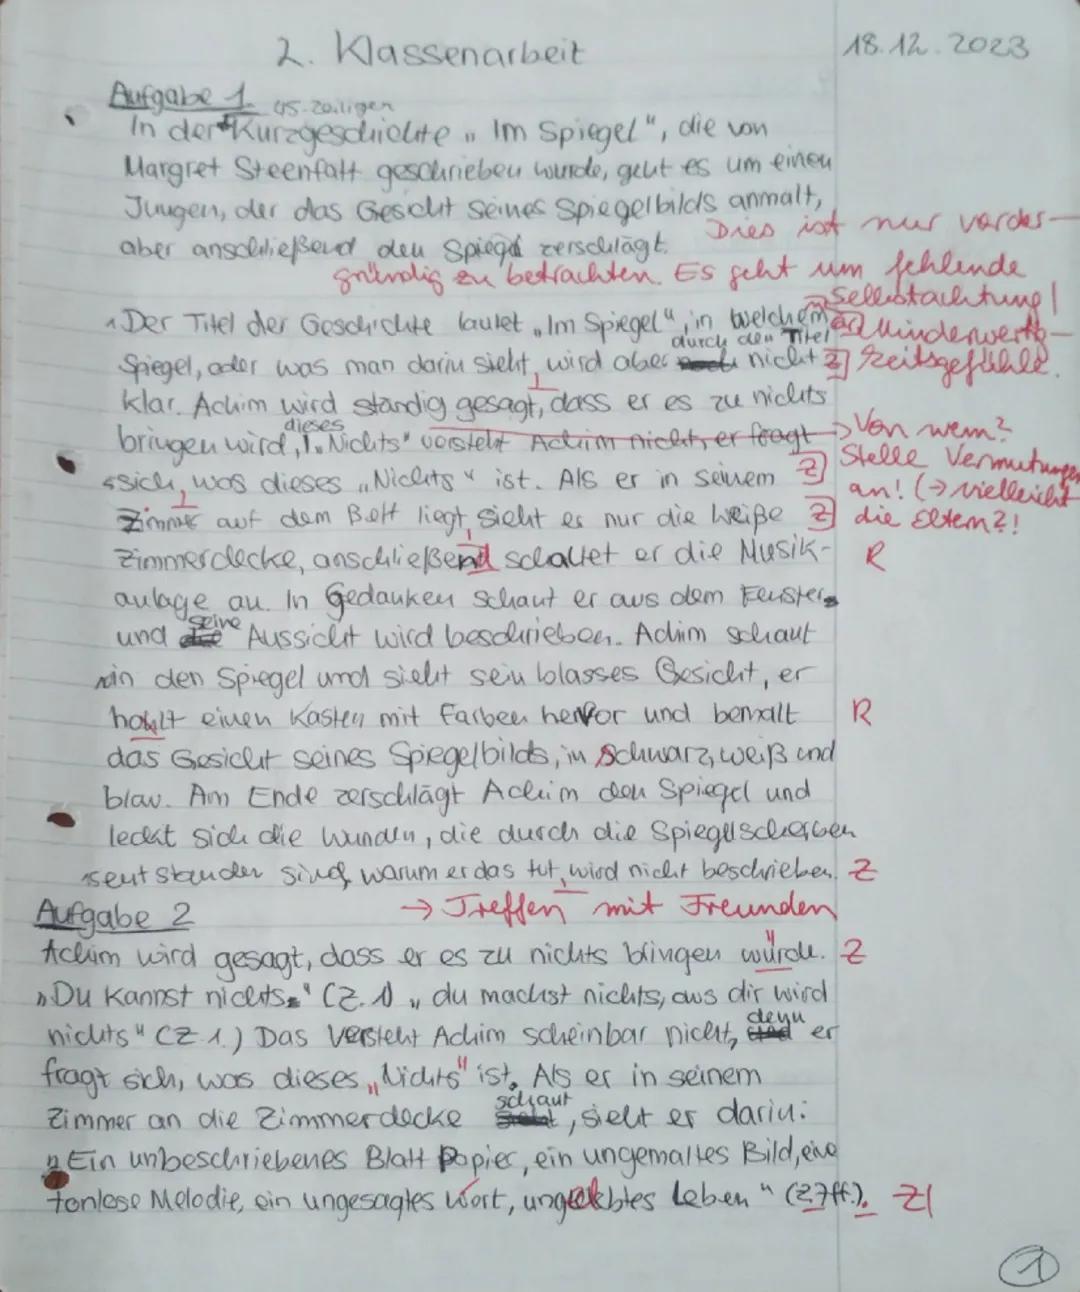 2. Klassenarbeit 18.12.2023
Aufgabe 1
45-zeiligen
In der Kurzgeschichte „Im Spiegel", die von
Margret Steenfatt geschrieben wurde, geht es um einen
Jungen, der das Gesicht seines Spiegelbilds anmalt,
aber anschließend den Spiegel zerschlägt. Dies ist nur vorder-
gründig zu betrachten. Es geht um fehlende
Selbstachtung/
Der Titel der Geschichte lautet „Im Spiegel", in welchem Minderwertig-
durch den Titel
Spiegel, oder was man darin sieht, wird aber nicht Z keitsgefühle.
klar. Achim wird ständig gesagt, dass er es zu nichts
dieses
bringen wird, „Nichts" versteht Achim nicht, er fragt → Von wem?
sich, was dieses „Nichts" ist. Als er in seinem Z Stelle Vermutungen
an! (→ vielleicht
Zimmer auf dem Bett liegt, sieht er nur die weiße Z die Eltern?!
Zimmerdecke, anschließend schaltet er die Musik- R
anlage an. In Gedanken schaut er aus dem Fenster
seine
und Aussicht wird beschrieben. Achim schaut
in den Spiegel und sieht sein blasses Gesicht, er
hohlt einen Kasten mit Farben hervor und bemalt R
das Gesicht seines Spiegelbilds, in schwarz, weiß und
blau. Am Ende zerschlägt Achim den Spiegel und
leckt sich die Wunden, die durch die Spiegelscherben
entstanden sind, warum er das tut, wird nicht beschrieben. Z
Aufgabe 2 → Treffen mit Freunden
Achim wird gesagt, dass er es zu nichts bringen würde. Z
„Du kannst nichts." (Z. 1) „du machst nichts, aus dir wird
denn
nichts" (Z 1.) Das versteht Achim scheinbar nicht, er
fragt sich, was dieses „Nichts" ist. Als er in seinem
schaut
Zimmer an die Zimmerdecke , sieht er darin:
„Ein unbeschriebenes Blatt Papier, ein ungemaltes Bild, eine
tonlose Melodie, ein ungesagtes Wort, ungelebtes Leben" (Z7ff.). Z
1